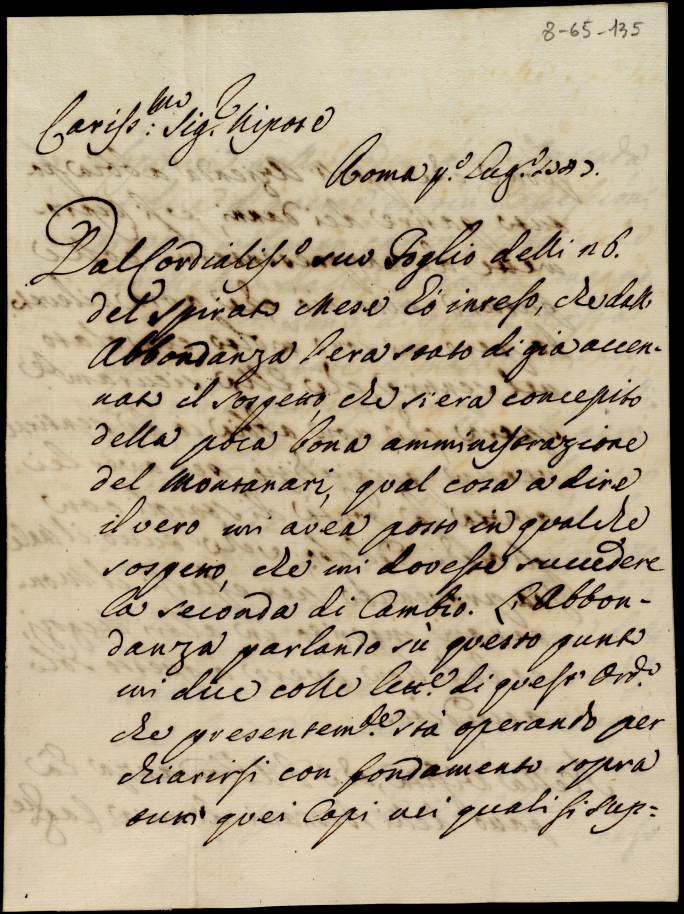 8-65-135
Cariss:mo Sig.r Nipote
Roma p.o Lug.o
Dal Cordialiss.o suo Foglio delli 26.
del spirato Mese hò inteso, che dall
Abbondanza l'era stato di già accen-
nato il sospetto, che si era concepito
della poca bona amministrazione
del Montanari, qual cosa a dire
il vero mi avea posto in qualche
sospetto, che mi dovesse succedere
la seconda di Cambio. L'Abbon-
danza parlando sù questo punto
mi dice colle lett.e di quest' Ord.o
che presentem.te stà operando per
chiarirsi con fondamento sopra
tutti quei Capi nei quali si sup=